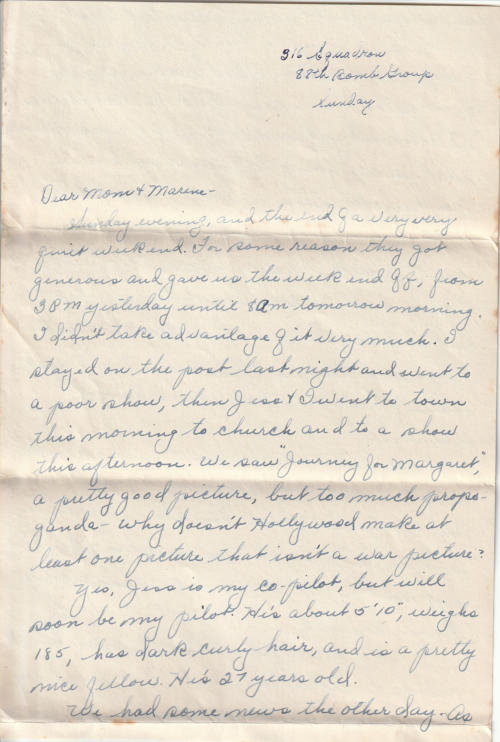 316 Squadron
88th Bomb Group
Sunday
Dear Mom & Marene-
Sunday evening, and the end of a very very
quiet weekend. For some reason they got
generous and gave us the week end off, from
3 PM yesterday until 8 am tomorrow morning.
I didn't take advantage of it very much. I
stayed on the post last night and went to
a poor show, then Jess & I went to town
this morning to church and to a show
this afternoon. We saw "Journey for Margaret",
a pretty good picture, but too much propo-
ganda - why doesn't Hollywood make at
least one picture that isn't a war picture?
Yes, Jess is my co-pilot, but will
soon be my pilot. His about 5'10", weighs
185, has dark curly hair, and is a pretty
nice fellow. His 27 years old.
We had some news the other day. As